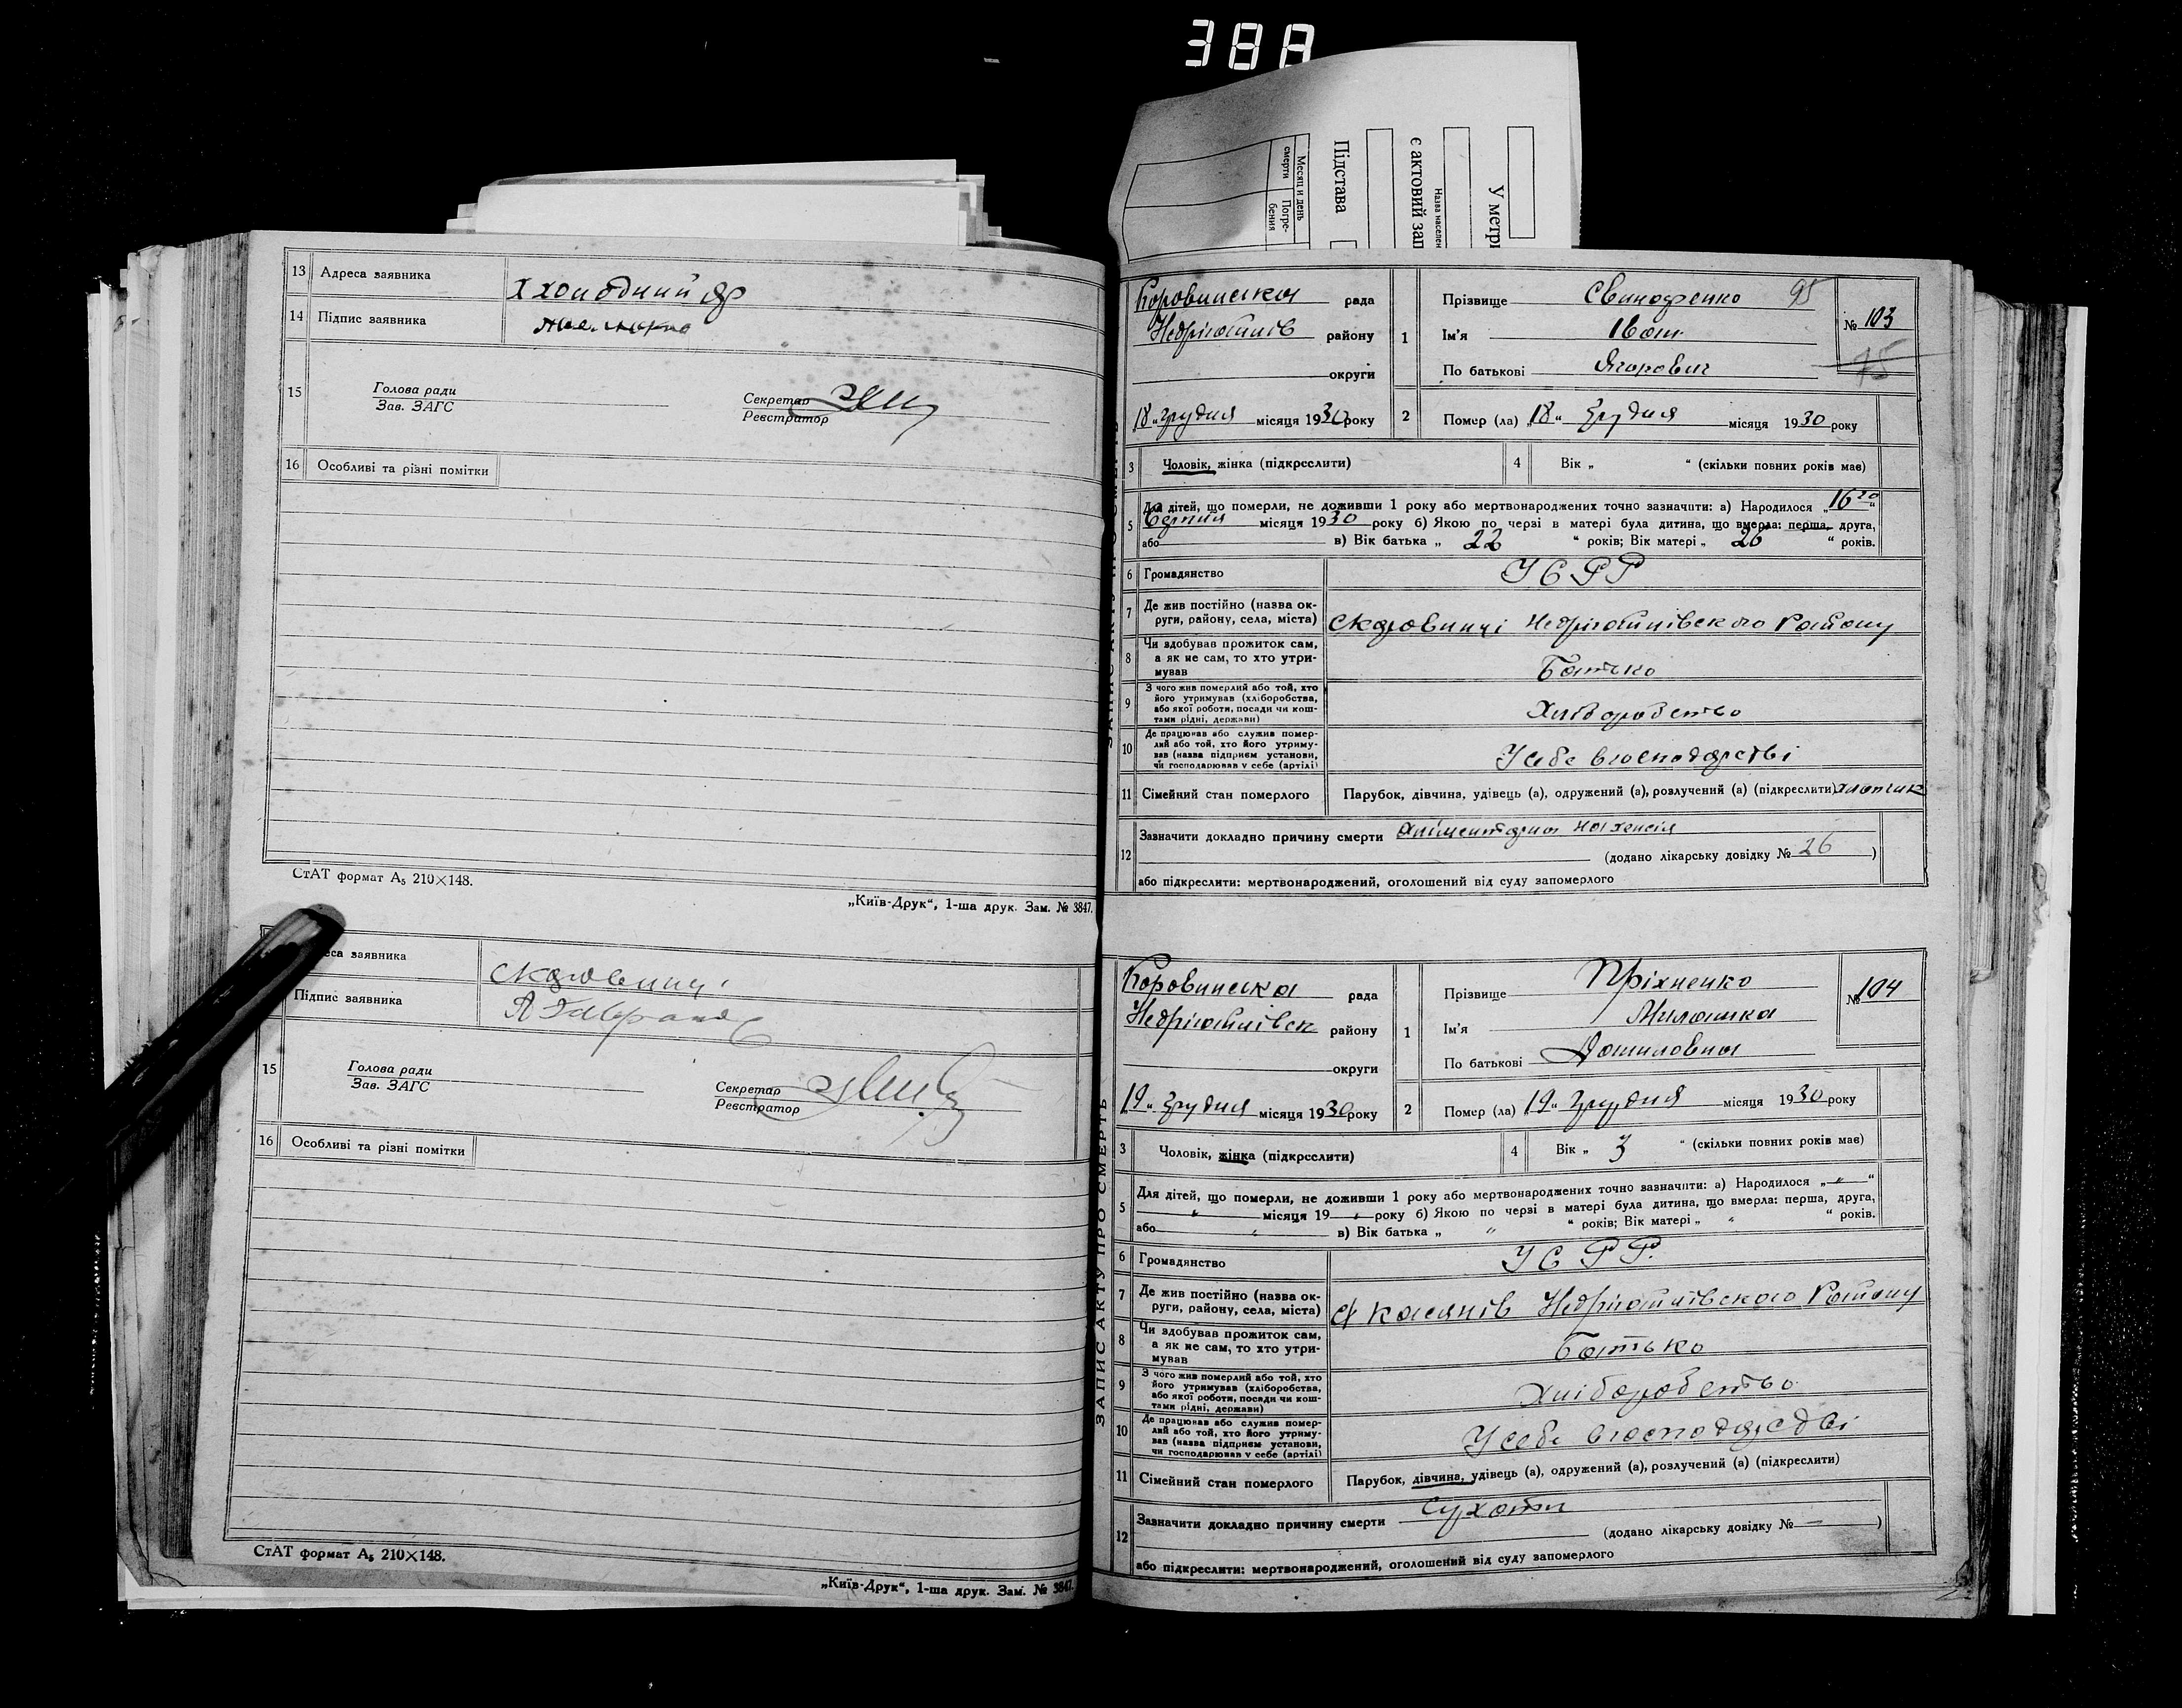 388
Месяц и день
смерти Погре-
бения
Підстава
є актовий зап
Назва населен
У метрі
13 Адреса заявника
Х холодний яр
14 Підпис заявника
15 Голова ради
Зав. ЗАГС
Секретар
Реєстратор
16 Особливі та різні помітки
СтАТ формат А₅ 210×148.
„Київ-Друк“, 1-ша друк. Зам. № 3847.
еса заявника
Підпис заявника
15 Голова ради
Зав. ЗАГС
Секретар
Реєстратор
16 Особливі та різні помітки
СтАТ формат А₅ 210×148.
„Київ-Друк“, 1-ша друк. Зам. № 3847.
Коровинська рада
району
округи
18 „ грудня місяця 1930 року
1 Прізвище 95
Ім'я Іван
По батькові Ягорович
№ 103
75
2 Помер (ла) „18“ грудня місяця 1930 року
3 Чоловік, жінка (підкреслити)
4 Вік „ “ (скільки повних років має)
5 Для дітей, що померли, не доживши 1 року або мертвонароджених точно зазначити: а) Народилося „16го“
серпня місяця 1930 року б) Якою по черзі в матері була дитина, що вмерла: перша, друга,
або в) Вік батька „ 22 “ років; Вік матері „ 26 “ років.
6 Громадянство УСРР
7 Де жив постійно (назва ок-
руги, району, села, міста)
8 Чи здобував прожиток сам,
а як не сам, то хто утри-
мував
Батько
9 З чого жив померлий або той, хто
його утримував (хліборобства,
або якої роботи, посади чи кош-
тами рідні, держави)
Хліборобство
10 Де працював або служив помер-
лий або той, хто його утриму-
вав (назва підприєм установи,
чи господарював у себе (артілі)
У себе в господарстві
11 Сімейний стан померлого
Парубок, дівчина, удівець (а), одружений (а), розлучений (а) (підкреслити) хлопчик
12 Зазначити докладно причину смерти
(додано лікарську довідку № 26 )
або підкреслити: мертвонароджений, оголошений від суду запомерлого
ЗАПИС АКТУ ПРО СМЕРТЬ
Коровинська рада
району
округи
19 „ грудня місяця 1930 року
1 Прізвище Пріхненко
Ім'я Милашка
По батькові Даниловна
№ 104
2 Помер (ла) „19“ грудня місяця 1930 року
3 Чоловік, жінка (підкреслити)
4 Вік „ 3 “ (скільки повних років має)
5 Для дітей, що померли, не доживши 1 року або мертвонароджених точно зазначити: а) Народилося „ “
місяця 19 року б) Якою по черзі в матері була дитина, що вмерла: перша, друга,
або в) Вік батька „ “ років; Вік матері „ “ років.
6 Громадянство УСРР.
7 Де жив постійно (назва ок-
руги, району, села, міста)
8 Чи здобував прожиток сам,
а як не сам, то хто утри-
мував
Батько
9 З чого жив померлий або той, хто
його утримував (хліборобства,
або якої роботи, посади чи кош-
тами рідні, держави)
Хліборобство
10 Де працював або служив помер-
лий або той, хто його утриму-
вав (назва підприєм установи,
чи господарював у себе (артілі)
У себе в господарсдві
11 Сімейний стан померлого
Парубок, дівчина, удівець (а), одружений (а), розлучений (а) (підкреслити)
12 Зазначити докладно причину смерти Сухоти
(додано лікарську довідку № — )
або підкреслити: мертвонароджений, оголошений від суду запомерлого